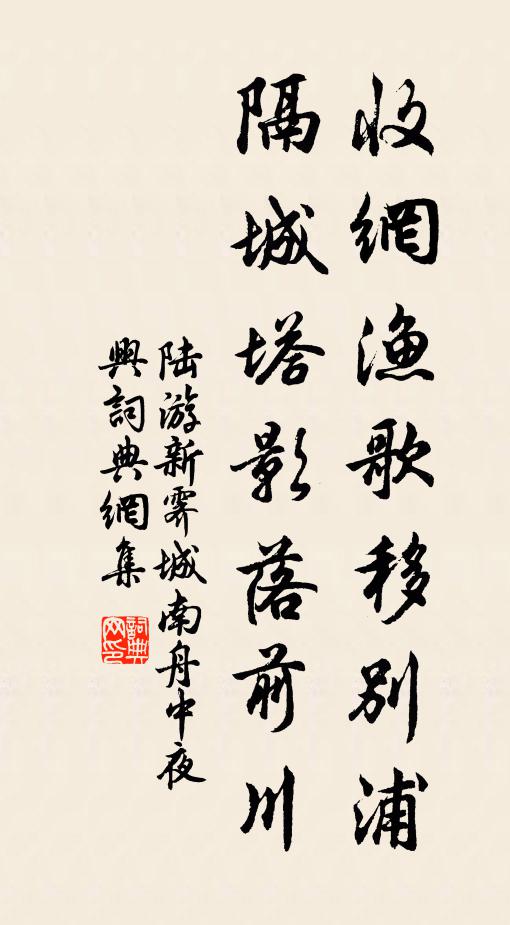 收網漁歌移別浦
隔城塔影落前川
陆游新霽城南舟中夜
興詞典網集
詞典
网印